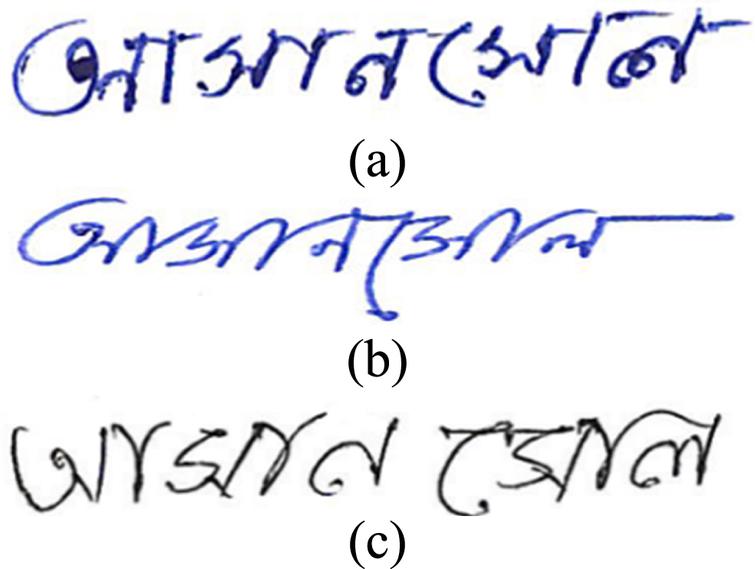 আসানসোল
(a)
আসানসোল
(b)
আসান সোল
(c)